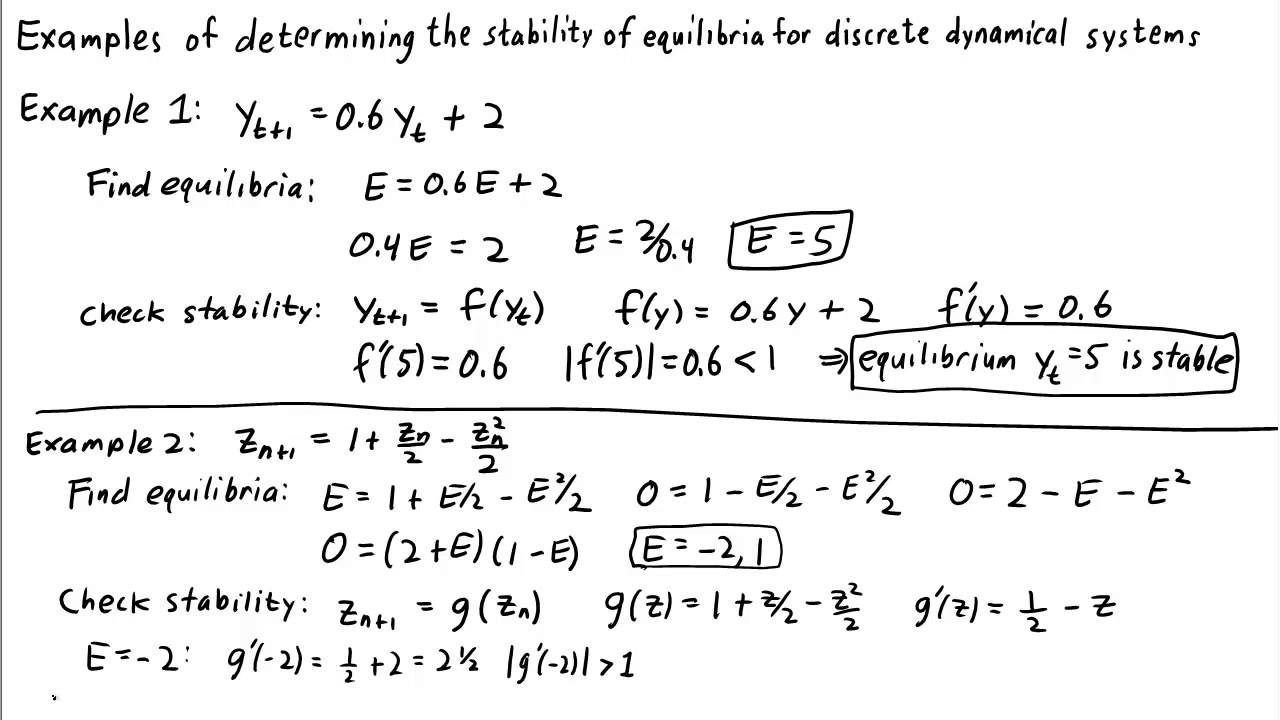 Examples of determining the stability of equilibria for discrete dynamical systems
Example 1: y_{t+1} = 0.6 y_t + 2
Find equilibria: E = 0.6E + 2
0.4E = 2 E = 2/0.4 E = 5
Check stability: y_{t+1} = f(y_t) f(y) = 0.6y + 2 f'(y) = 0.6
f'(5) = 0.6 |f'(5)| = 0.6 < 1 ⇒ equilibrium y_t = 5 is stable
Example 2: z_{n+1} = 1 + z_n/2 - z_n^2/2
Find equilibria: E = 1 + E/2 - E^2/2 0 = 1 - E/2 - E^2/2 0 = 2 - E - E^2
0 = (2+E)(1-E) E = -2, 1
Check stability: z_{n+1} = g(z_n) g(z) = 1 + z/2 - z^2/2 g'(z) = 1/2 - z
E = -2: g'(-2) = 1/2 + 2 = 2 1/2 |g'(-2)| > 1